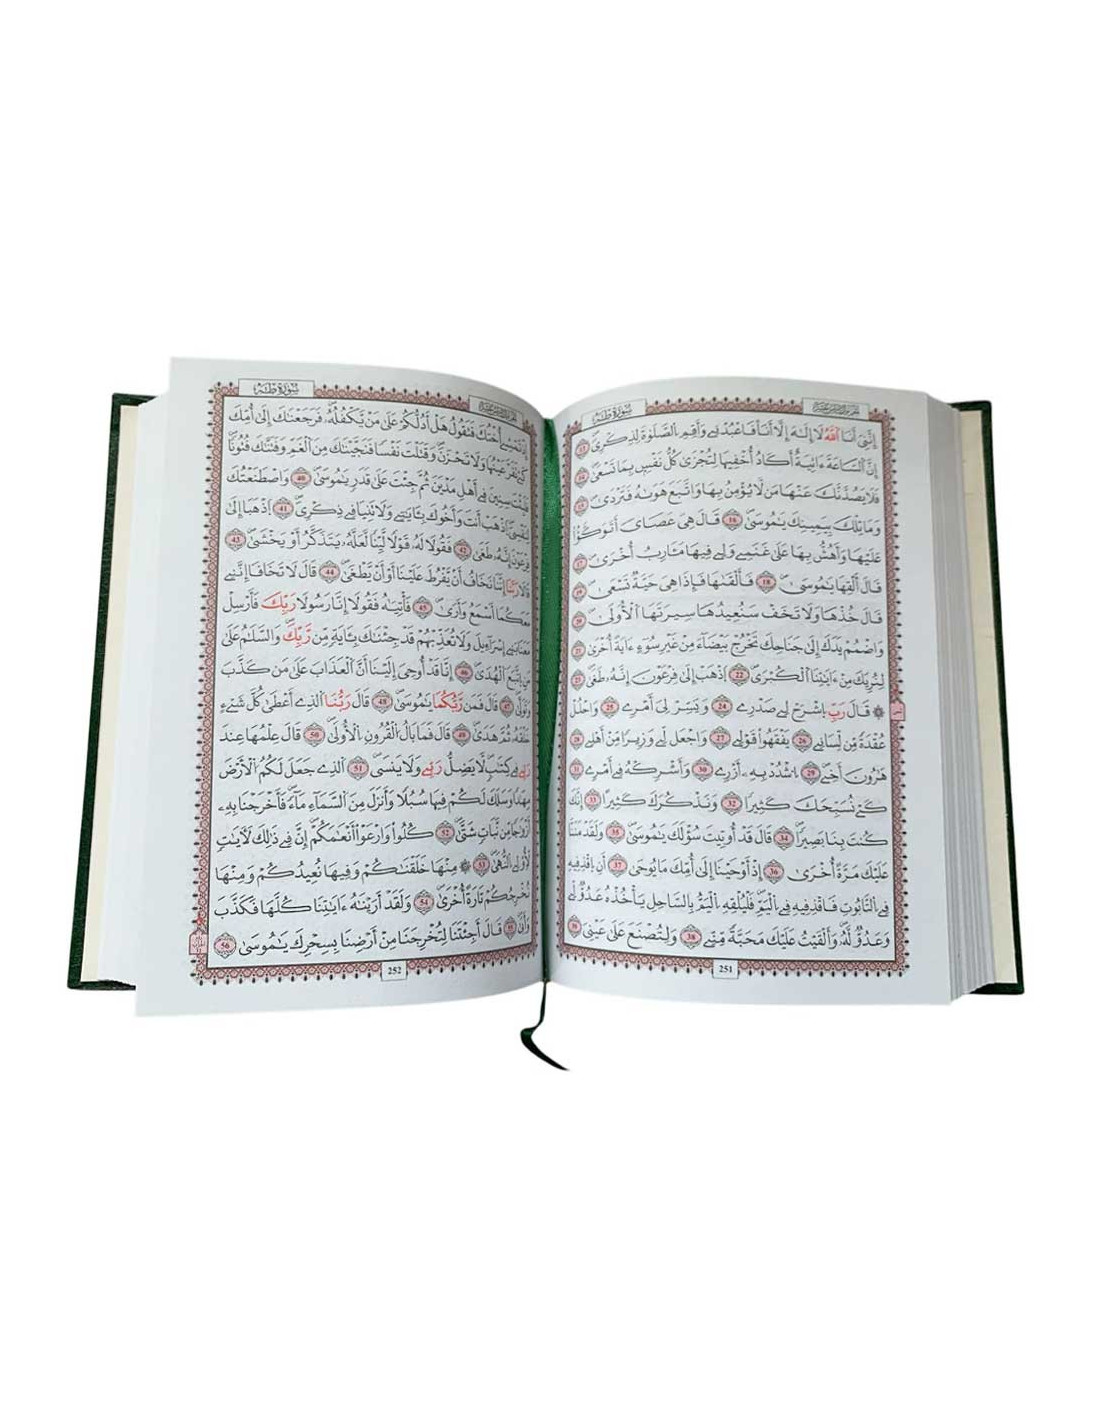 سُورَةُ طَهَ
إِنَّنِىَ أَنَا اَ۬للَّهُ لَا إِلَٰهَ إِلَّا أَنَا فَاعْبُدْنِے وَأَقِمِ اِ۬لصَّلَوٰةَ لِذِكْرِىَ 13
إِنَّ اَ۬لسَّاعَةَ ءَاتِيَةٌ أَكَادُ أُخْفِيهَا لِتُجْزَىٰ كُلُّ نَفْسِۢ بِمَا تَسْعَىٰ 14
فَلَا يَصُدَّنَّكَ عَنْهَا مَن لَّا يُؤْمِنُ بِهَا وَاتَّبَعَ هَوَىٰهُ فَتَرْدَىٰ 15
وَمَا تِلْكَ بِيَمِينِكَ يَٰمُوسَىٰ 16 قَالَ هِىَ عَصَاىَ أَتَوَكَّؤُاْ
عَلَيْهَا وَأَهُشُّ بِهَا عَلَىٰ غَنَمِے وَلِے فِيهَا مَـَٔارِبُ أُخْرَىٰ 17
قَالَ أَلْقِهَا يَٰمُوسَىٰ 18 فَأَلْقَىٰهَا فَإِذَا هِىَ حَيَّةٌ تَسْعَىٰ 19
قَالَ خُذْهَا وَلَا تَخَفْ سَنُعِيدُهَا سِيرَتَهَا اَ۬لْأُولَىٰ 20
وَاضْمُمْ يَدَكَ إِلَىٰ جَنَاحِكَ تَخْرُجْ بَيْضَآءَ مِنْ غَيْرِ سُوٓءٍ ءَايَةً أُخْرَىٰ 21
لِنُرِيَكَ مِنْ ءَايَٰتِنَا اَ۬لْكُبْرَىٰ 22 اَ۪ذْهَبِ اِلَىٰ فِرْعَوْنَ إِنَّهُۥ طَغَىٰ 23
۞ قَالَ رَبِّ اِ۪شْرَحْ لِے صَدْرِے 24 وَيَسِّرْ لِىَ أَمْرِے 25 وَاحْلُلْ
عُقْدَةً مِّن لِّسَانِے 26 يَفْقَهُواْ قَوْلِے 27 وَاجْعَل لِّے وَزِيراً مِّنْ أَهْلِے 28
هَٰرُونَ أَخِے 29 اَ۟شْدُدْ بِهِۦٓ أَزْرِے 30 وَأَشْرِكْهُ فِے أَمْرِے 31
كَےْ نُسَبِّحَكَ كَثِيراً 32 وَنَذْكُرَكَ كَثِيراً 33 إِنَّكَ
كُنتَ بِنَا بَصِيراً 34 قَالَ قَدْ أُوتِيتَ سُؤْلَكَ يَٰمُوسَىٰ 35 وَلَقَدْ مَنَنَّا
عَلَيْكَ مَرَّةً أُخْرَىٰ 36 إِذْ أَوْحَيْنَا إِلَىٰ أُمِّكَ مَا يُوحَىٰ 37 أَنِ اِ۪قْذِفِيهِ
فِے اِ۬لتَّابُوتِ فَاقْذِفِيهِ فِے اِ۬لْيَمِّ فَلْيُلْقِهِ اِ۬لْيَمُّ بِالسَّاحِلِ يَأْخُذْهُ عَدُوٌّ لِّے
وَعَدُوٌّ لَّهُۥ وَأَلْقَيْتُ عَلَيْكَ مَحَبَّةً مِّنِّے 38 وَلِتُصْنَعَ عَلَىٰ عَيْنِىَ 39
251
سُورَةُ طَهَ
إِذْ تَمْشِے أُخْتُكَ فَتَقُولُ هَلْ أَدُلُّكُمْ عَلَىٰ مَنْ يَّكْفُلُهُۥ فَرَجَعْنَٰكَ إِلَىٰ أُمِّكَ
كَےْ تَقَرَّ عَيْنُهَا وَلَا تَحْزَنَ وَقَتَلْتَ نَفْساً فَنَجَّيْنَٰكَ مِنَ اَ۬لْغَمِّ وَفَتَنَّٰكَ فُتُوناً
فَلَبِثْتَ سِنِينَ فِے أَهْلِ مَدْيَنَ ثُمَّ جِئْتَ عَلَىٰ قَدَرٍ يَٰمُوسَىٰ 40 وَاصْطَنَعْتُكَ
لِنَفْسِىَ اَ۪ذْهَبْ أَنتَ وَأَخُوكَ بِـَٔايَٰتِے وَلَا تَنِيَا فِے ذِكْرِىَ 41 اَ۪ذْهَبَا إِلَىٰ
فِرْعَوْنَ إِنَّهُۥ طَغَىٰ 42 فَقُولَا لَهُۥ قَوْلاً لَّيِّناً لَّعَلَّهُۥ يَتَذَكَّرُ أَوْ يَخْشَىٰ 43
قَالَا رَبَّنَا إِنَّنَا نَخَافُ أَنْ يَّفْرُطَ عَلَيْنَا أَوْ أَنْ يَّطْغَىٰ 44 قَالَ لَا تَخَافَا إِنَّنِے
مَعَكُمَا أَسْمَعُ وَأَرَىٰ 45 فَأْتِيَٰهُ فَقُولَا إِنَّا رَسُولَا رَبِّكَ فَأَرْسِلْ
مَعَنَا بَنِے إِسْرَآءِيلَ وَلَا تُعَذِّبْهُمْ قَدْ جِئْنَٰكَ بِـَٔايَةٍ مِّن رَّبِّكَ وَالسَّلَٰمُ عَلَىٰ
مَنِ اِ۪تَّبَعَ اَ۬لْهُدَىٰ 46 إِنَّا قَدْ أُوحِىَ إِلَيْنَا أَنَّ اَ۬لْعَذَابَ عَلَىٰ مَن كَذَّبَ
وَتَوَلَّىٰ 47 قَالَ فَمَن رَّبُّكُمَا يَٰمُوسَىٰ 48 قَالَ رَبُّنَا اَ۬لذِے أَعْطَىٰ كُلَّ شَےْءٍ
خَلْقَهُۥ ثُمَّ هَدَىٰ 49 قَالَ فَمَا بَالُ اُ۬لْقُرُونِ اِ۬لْأُولَىٰ 50 قَالَ عِلْمُهَا عِندَ
رَبِّے فِے كِتَٰبٍ لَّا يَضِلُّ رَبِّے وَلَا يَنسَىٰ 51 اَ۬لذِے جَعَلَ لَكُمُ اُ۬لْأَرْضَ
مِهَٰداً وَسَلَكَ لَكُمْ فِيهَا سُبُلاً وَأَنزَلَ مِنَ اَ۬لسَّمَآءِ مَآءً فَأَخْرَجْنَا بِهِۦٓ
أَزْوَٰجاً مِّن نَّبَاتٍ شَتَّىٰ 52 كُلُواْ وَارْعَوْاْ أَنْعَٰمَكُمْ إِنَّ فِے ذَٰلِكَ لَأٓيَٰتٍ
لِّأُوْلِے اِ۬لنُّهَىٰ 53 ۞ مِنْهَا خَلَقْنَٰكُمْ وَفِيهَا نُعِيدُكُمْ وَمِنْهَا
نُخْرِجُكُمْ تَارَةً أُخْرَىٰ 54 وَلَقَدْ أَرَيْنَٰهُ ءَايَٰتِنَا كُلَّهَا فَكَذَّبَ
وَأَبَىٰ 55 قَالَ أَجِئْتَنَا لِتُخْرِجَنَا مِنْ أَرْضِنَا بِسِحْرِكَ يَٰمُوسَىٰ 56
252